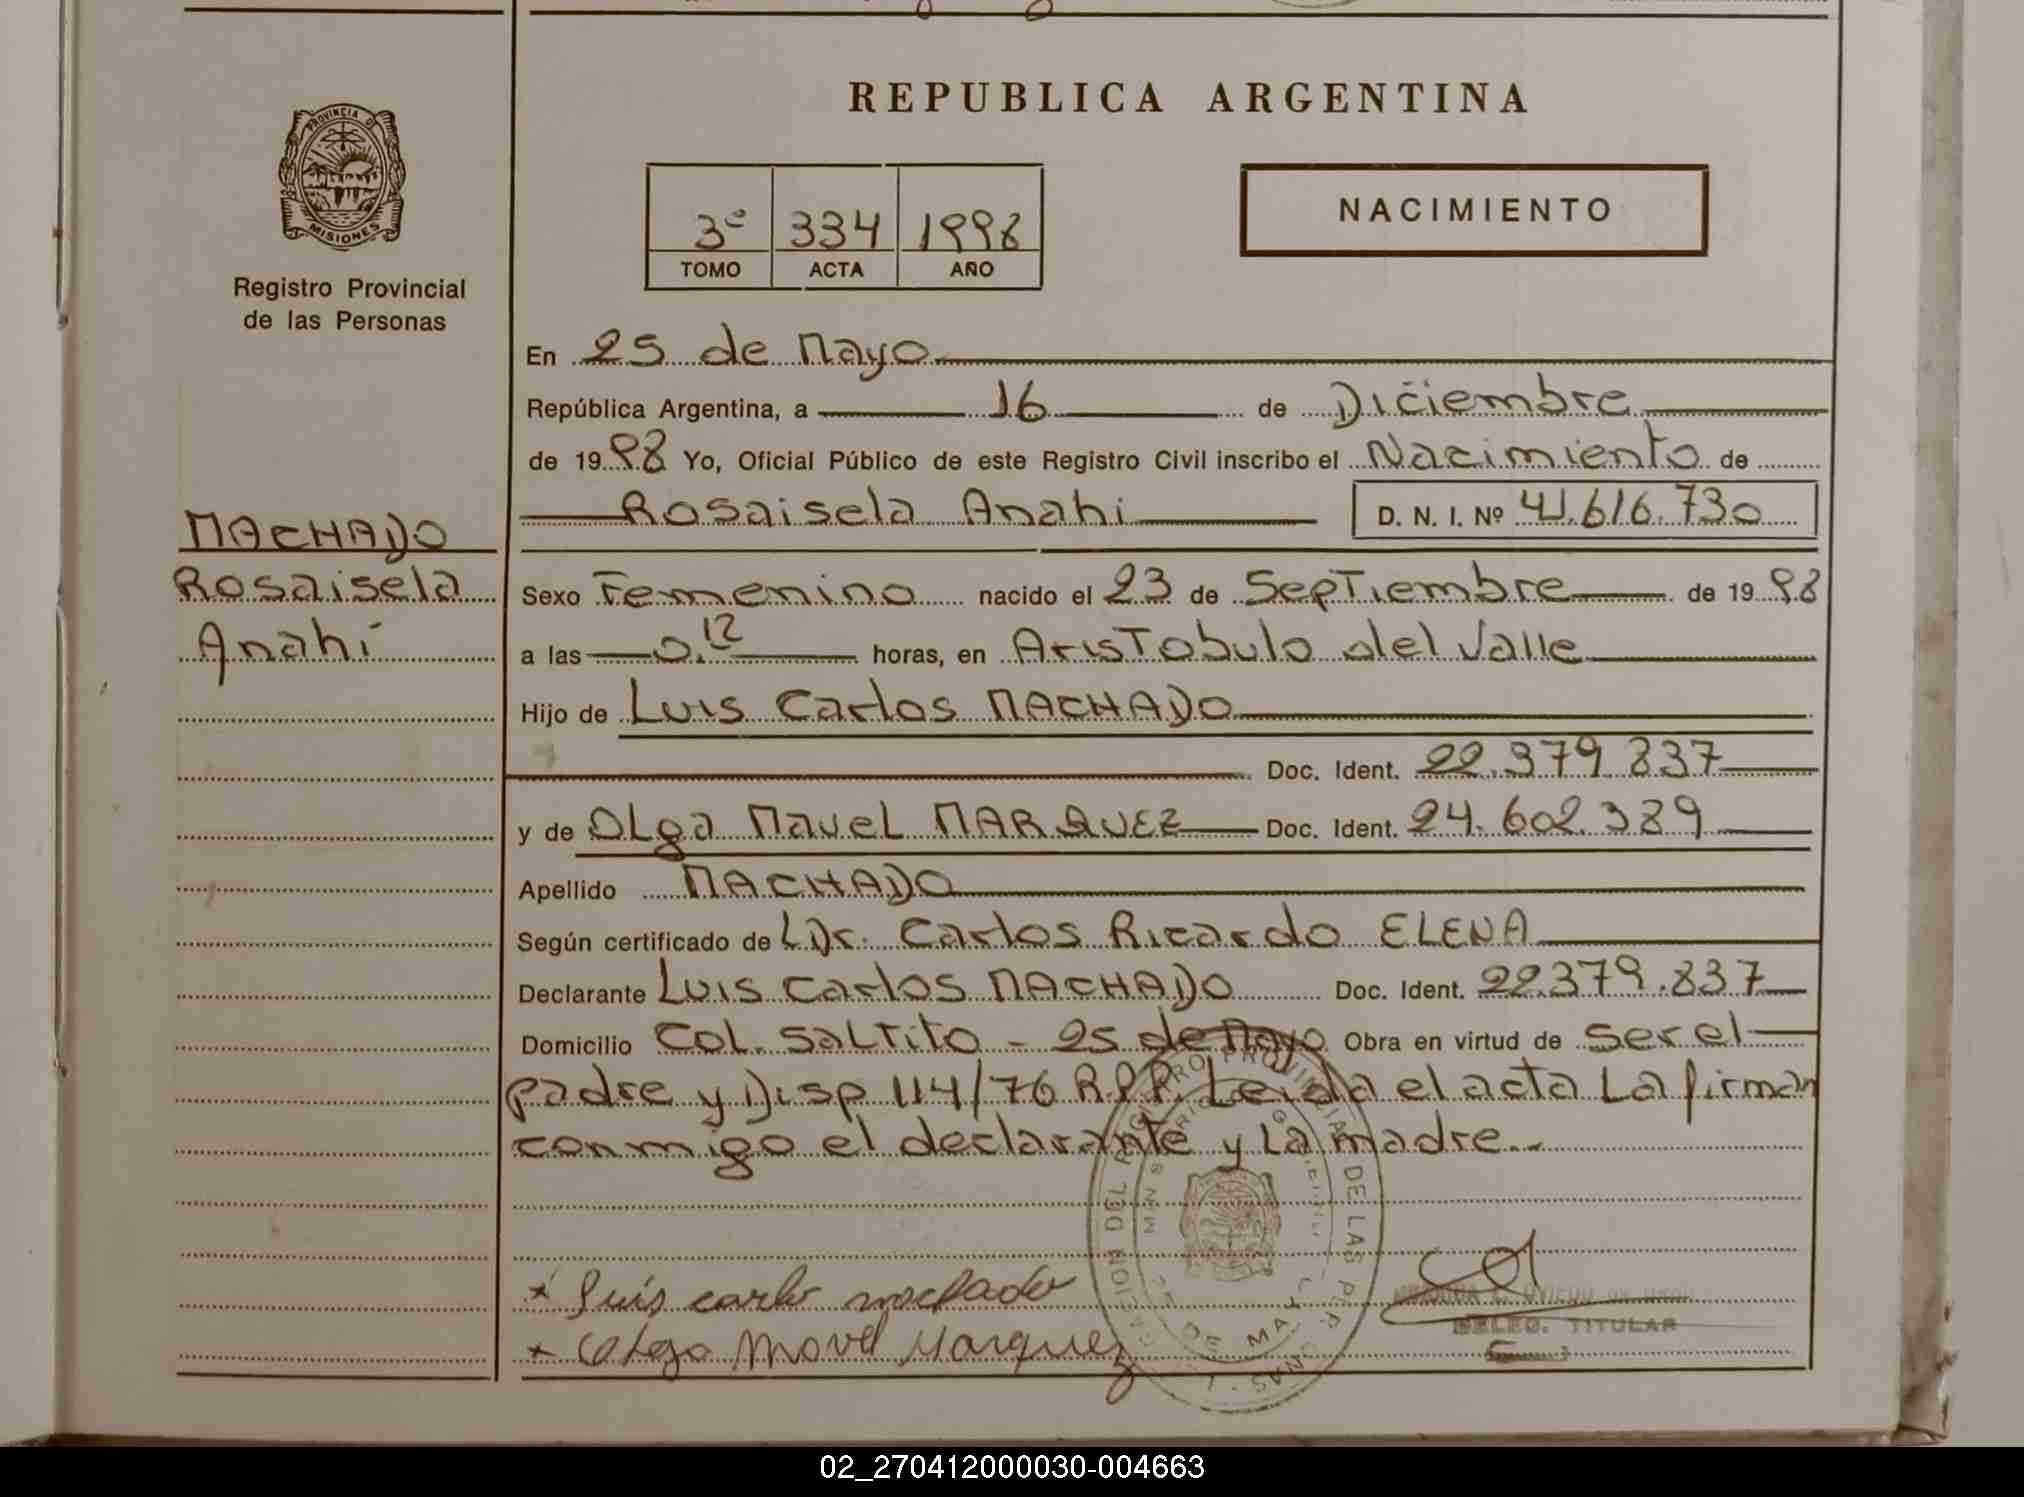 REPUBLICA ARGENTINA
PROVINCIA DE
MISIONES
Registro Provincial
de las Personas
3º 334 1998
TOMO ACTA AÑO
NACIMIENTO
En 25 de Mayo
República Argentina, a 16 de Diciembre
de 1998 Yo, Oficial Público de este Registro Civil inscribo el Nacimiento de
Rosaisela Anahi D. N. I. Nº 41.616.730
MACHADO
Rosaisela
Anahi
Sexo Femenino nacido el 23 de Septiembre de 1998
a las 0.12 horas, en Aristobulo del Valle
Hijo de Luis Carlos MACHADO
Doc. Ident. 22.379.837
y de Olga Mavel MARQUEZ Doc. Ident. 24.602.389
Apellido MACHADO
Según certificado de Dr. Carlos Ricardo ELENA
Declarante Luis Carlos MACHADO Doc. Ident. 22.379.837
Domicilio Col. Saltito - 25 de Mayo Obra en virtud de ser el
padre y Disp 114/76 R.P.P. Leida el acta La firman
conmigo el declarante y La madre.-
Luis carlo machado
Olga Mavel Marquez
DELEG. TITULAR
02_270412000030-004663